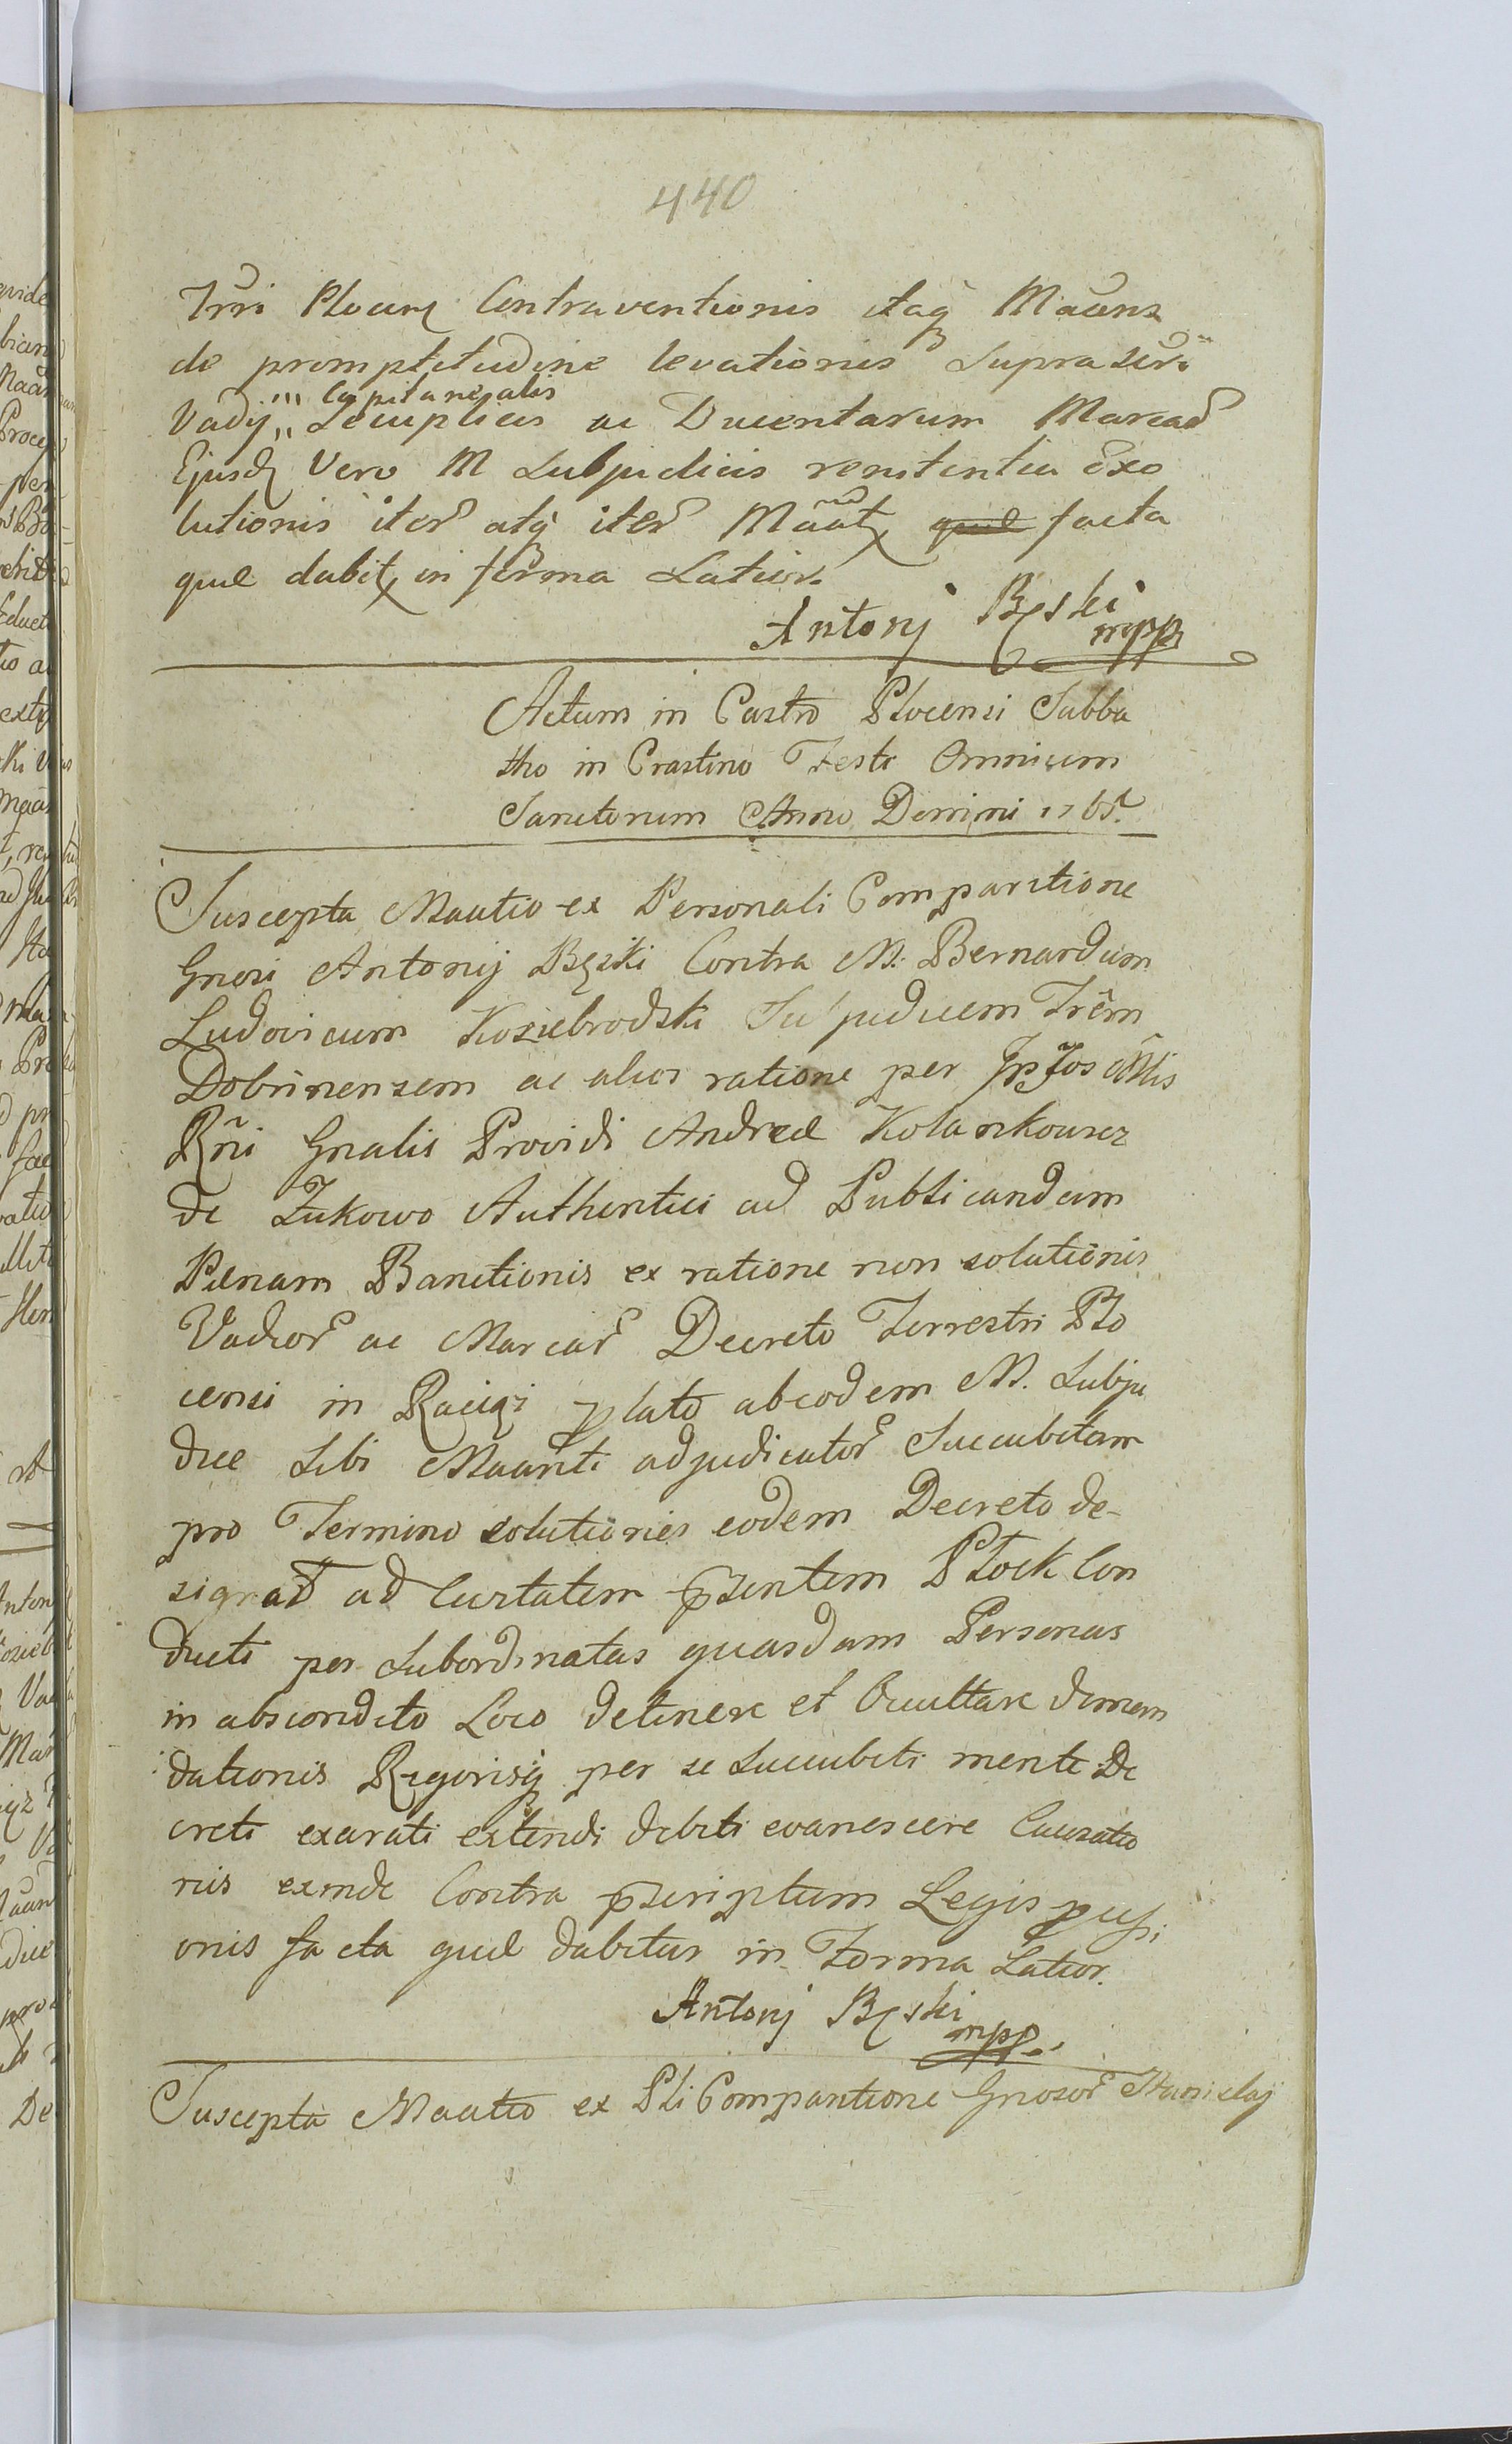 440
Trri Plocen Contraventionis itaq Maans
de promptitudine levationis suprascr.
Capitanealis
Vadij „ Sexuplicis ac Ducentarum Marcar
Ejusd Vero M Subjudicis renitentia exo
lutionis iter atq iter Maat quae facta
quae dabit in forma Latior.
Antonj Bęski
mpp
Actum in Castro Plocensi Sabba
tho in Crastino Festi Omnium
Sanctorum Anno Domini 1765
Suscepta Maatio ex Personali Comparitione
Gnosi Antonij Bęski Contra M. Bernardum
Ludovicum Koziebrodzki Subjudicem Trem
Dobrinensem ac alios ratione per
Rni Gnalis Providi Andreae Kolankowicz
de Zukowo Authentici ad Publicandam
Paenam Banitionis ex ratione non solutionis
Vadior ac Marcar Decreto Terrestri Plo
censi in Raciąz plato ab eodem M. Subju
dice sibi Maanti adjudicator Succubitam
pro Termino solutionis eodem Decreto de-
signat ad Civitatem pzentem Płock Con
ducti per Subordinatas quasdam Personas
in abscondito Loco detinere et Ocultare
dationis Rigorisq per se Succubiti mente De
creti exarati extendi debiti evanescere Causatio
nis exinde Contra pscriptum Legis
onis facta quae dabitur in Forma Latior.
Antonj Bęski
mpp.
Suscepta Maatio ex Pli Comparitione Gnosor Stanislaj